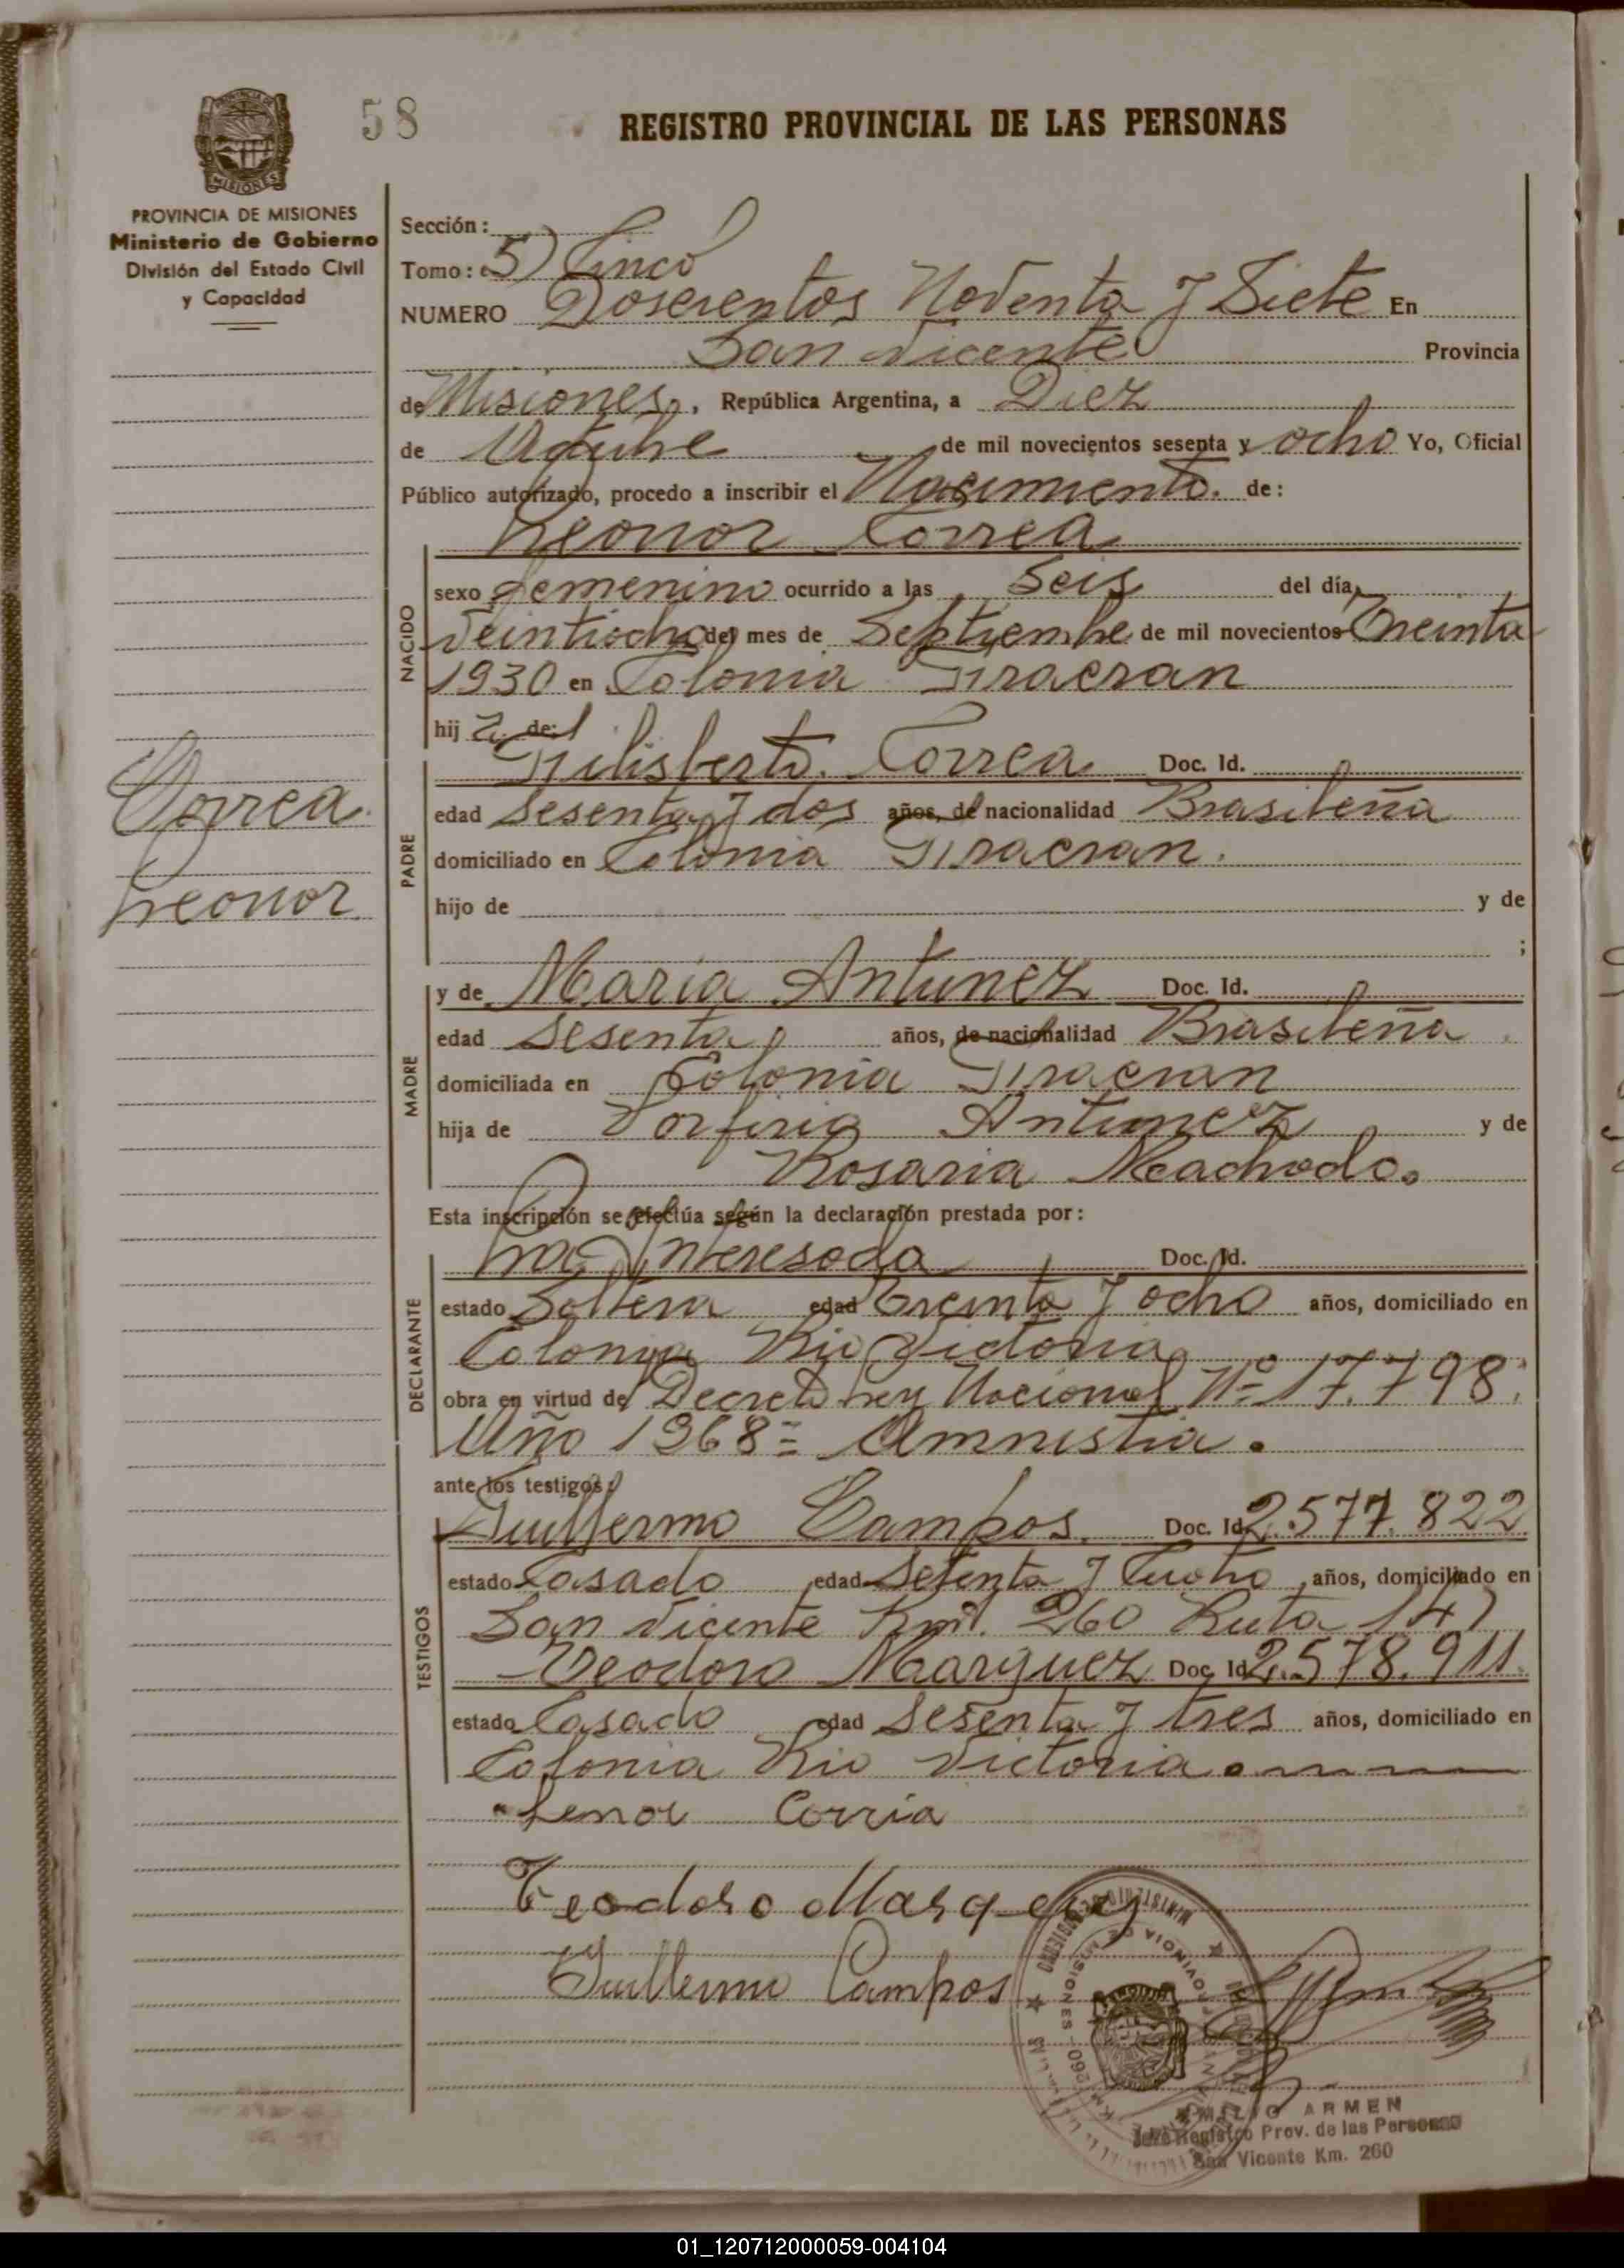 58
REGISTRO PROVINCIAL DE LAS PERSONAS
PROVINCIA DE MISIONES
Ministerio de Gobierno
División del Estado Civil
y Capacidad
Sección:
Tomo: 5) Cinco
NUMERO Doscientos Noventa y Siete En
San Vicente Provincia
de Misiones, República Argentina, a Diez
de Octubre de mil novecientos sesenta y ocho Yo, Oficial
Público autorizado, procedo a inscribir el Nacimiento. de:
Leonor Correa
NACIDO
sexo femenino ocurrido a las Seis del día
Veintiocho del mes de Septiembre de mil novecientos Treinta
1930 en Colonia Tiracran
hij de:
Correa Doc. Id.
Correa
Leonor
PADRE
edad Sesenta y dos años, de nacionalidad Brasileña
domiciliado en Colonia Tiracran.
hijo de y de
;
y de Maria Antunez Doc. Id.
MADRE
edad Sesenta años, de nacionalidad Brasileña
domiciliada en Colonia Tiracran
hija de Porfirio Antunez y de
Rosaria Machado.
Esta inscripción se efectúa según la declaración prestada por:
La Interesada Doc. Id.
DECLARANTE
estado Soltera edad Treinta y ocho años, domiciliado en
Colonia Rio Victoria
obra en virtud de Decreto Ley Nacional Nº 17.798.
Año 1968= Amnistia.
ante los testigos:
Guillermo Campos. Doc. Id. 2.577.822
TESTIGOS
estado Casado edad Setenta y Cuatro años, domiciliado en
San Vicente Km. 260 Ruta 14)
Teodoro Marquez Doc. Id. 2.578.911.
estado Casado edad Sesenta y tres años, domiciliado en
Colonia Rio Victoria.
Lenor Corria
Teodoro Marquez
Guillermo Campos
ARMEN
Jefe Registro Prov. de las Personas
San Vicente Km. 260
01_120712000059-004104